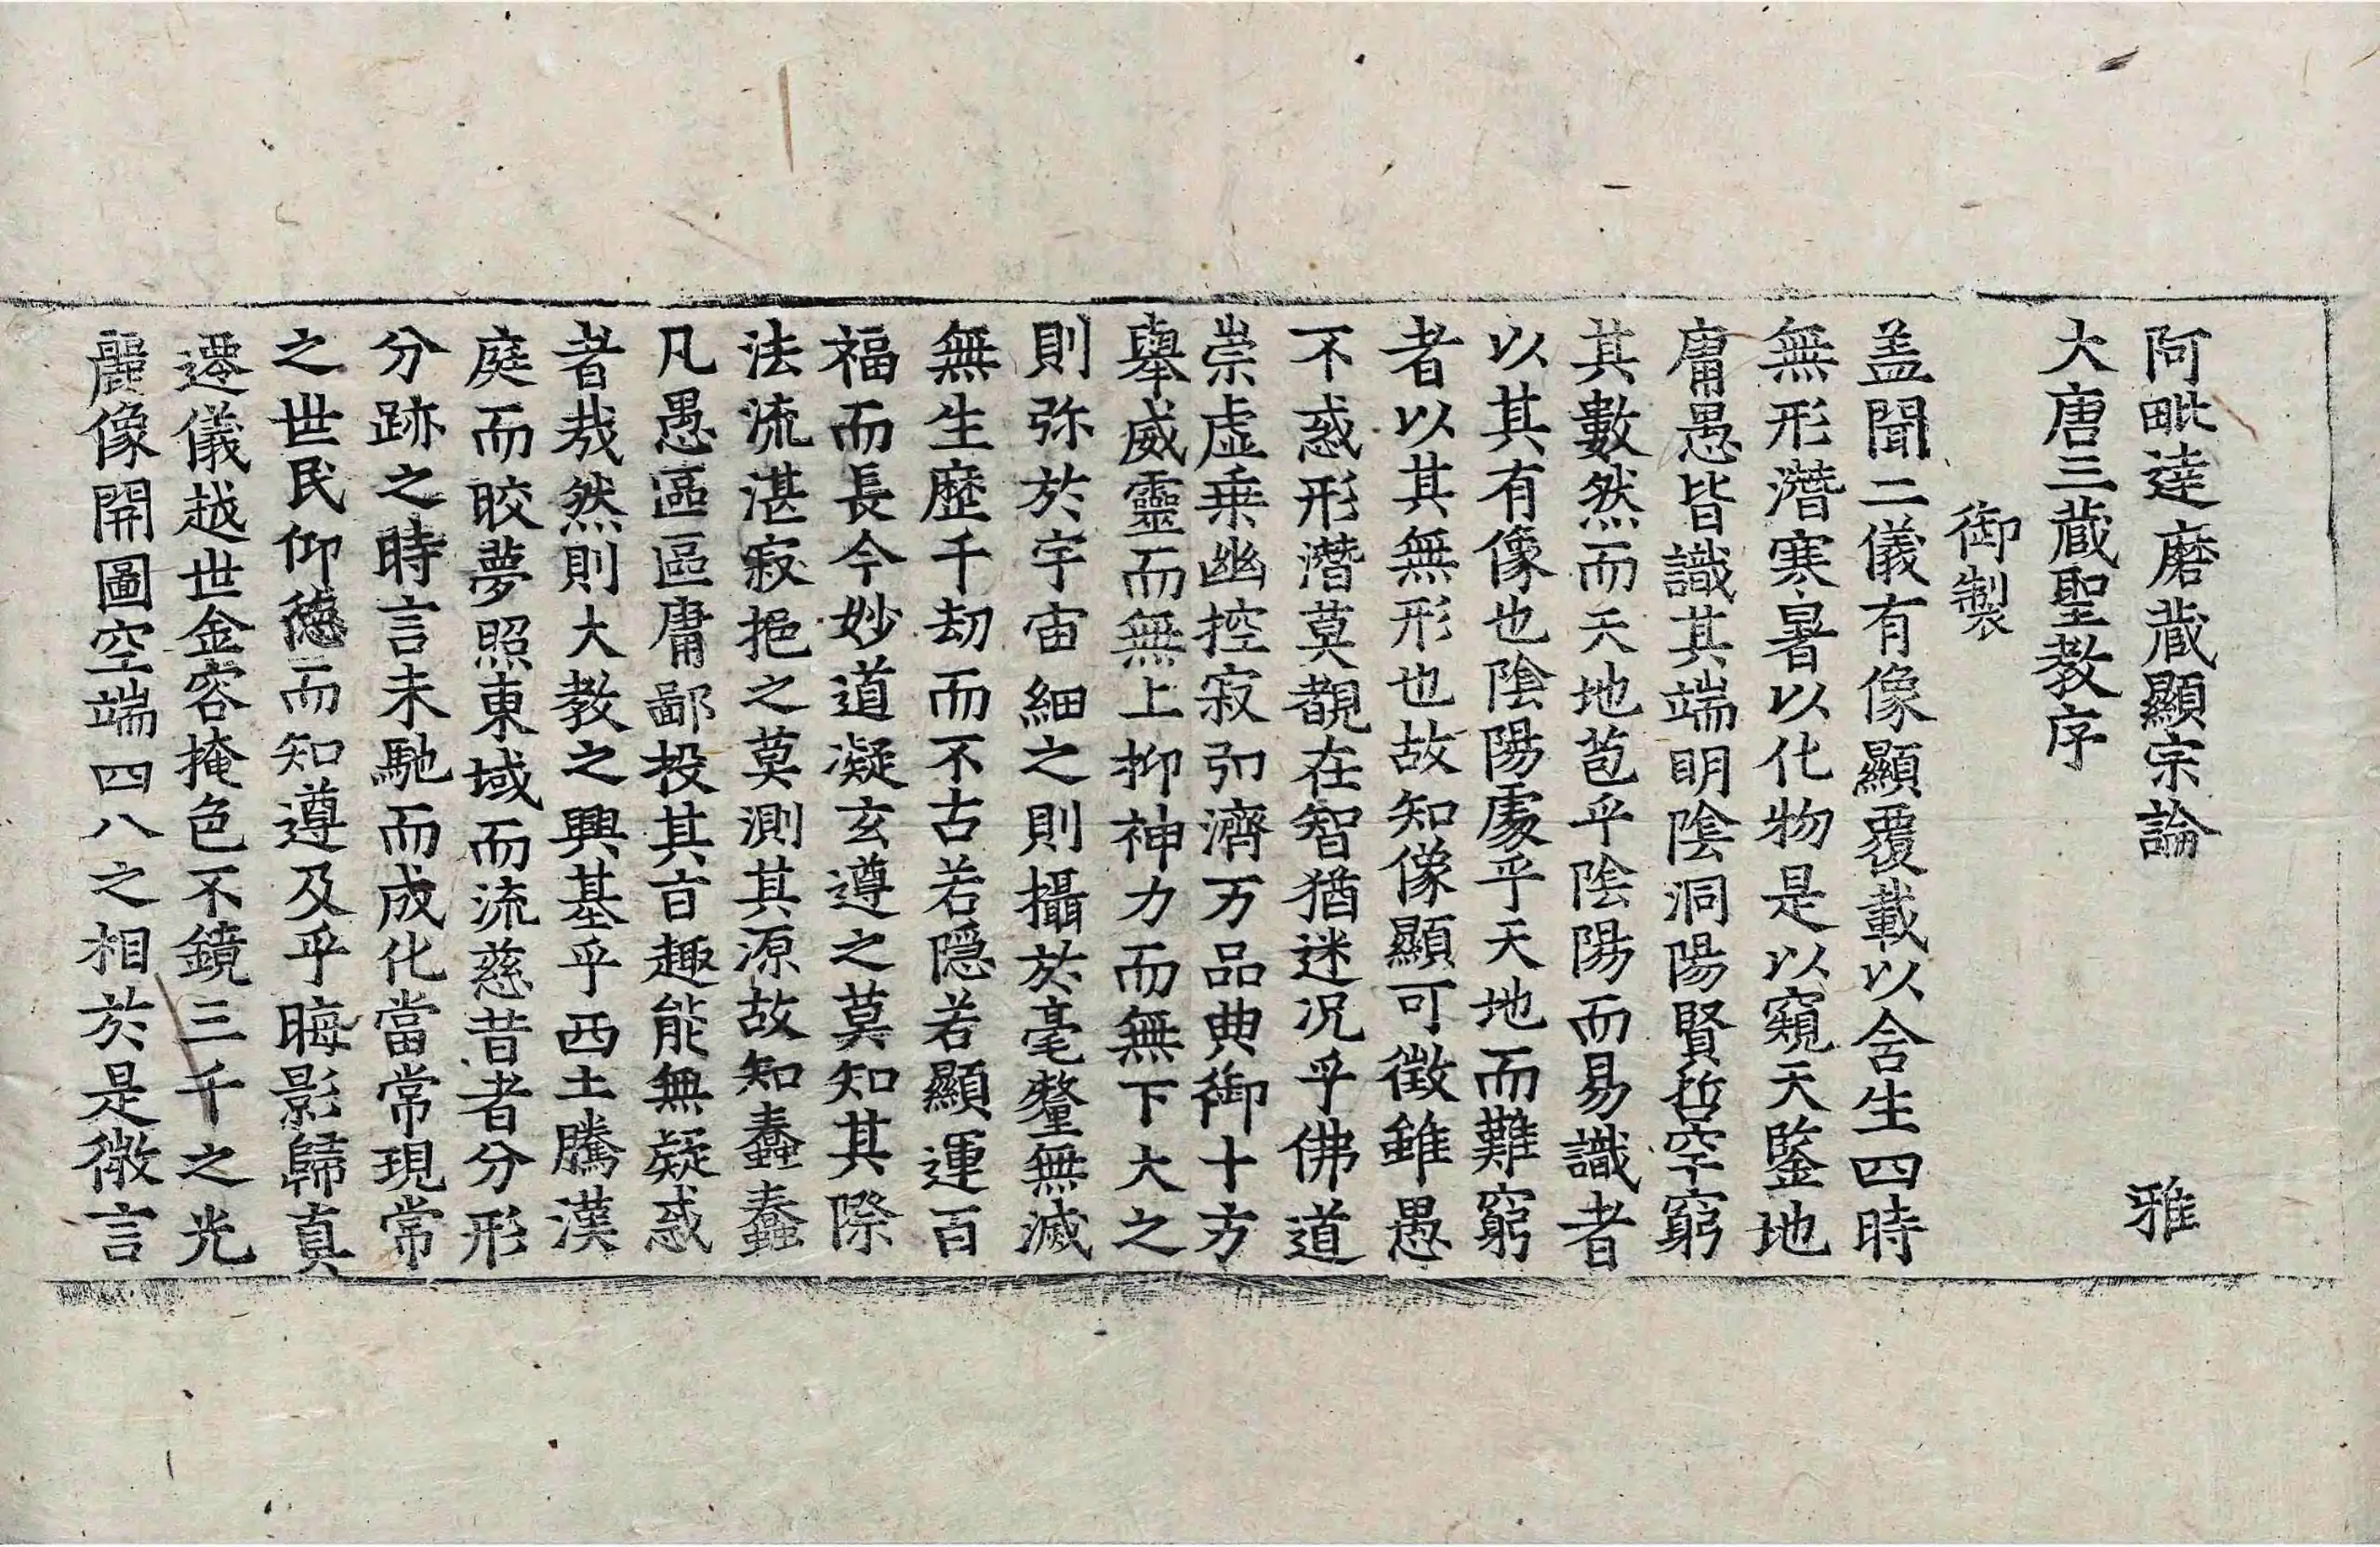 阿毗達磨蔵顯宗論　雅
大唐三蔵聖教序
御製
盖聞二儀有像顯覆載以含生四時
無形潛寒暑以化物是以窺天鑒地
庸愚皆識其端明陰洞陽賢哲罕窮
其數然而天地苞乎陰陽而易識者
以其有像也陰陽處乎天地而難窮
者以其無形也故知像顯可徵雖愚
不惑形潛莫覩在智猶迷況乎佛道
崇虛乗幽控寂弘濟万品典御十方
舉威靈而無上抑神力而無下大之
則弥於宇宙細之則攝於毫氂無滅
無生歷千劫而不古若隱若顯運百
福而長今妙道凝玄遵之莫知其際
法流湛寂挹之莫測其源故知蠢蠢
凡愚區區庸鄙投其旨趣能無疑惑
者㦲然則大教之興基乎西土騰漢
庭而皎夢照東域而流慈昔者分形
分跡之時言未馳而成化當常現常
之世民仰德而知遵及乎晦影歸真
遷儀越世金容掩色不鏡三千之光
麗像開圖空端四八之相於是微言